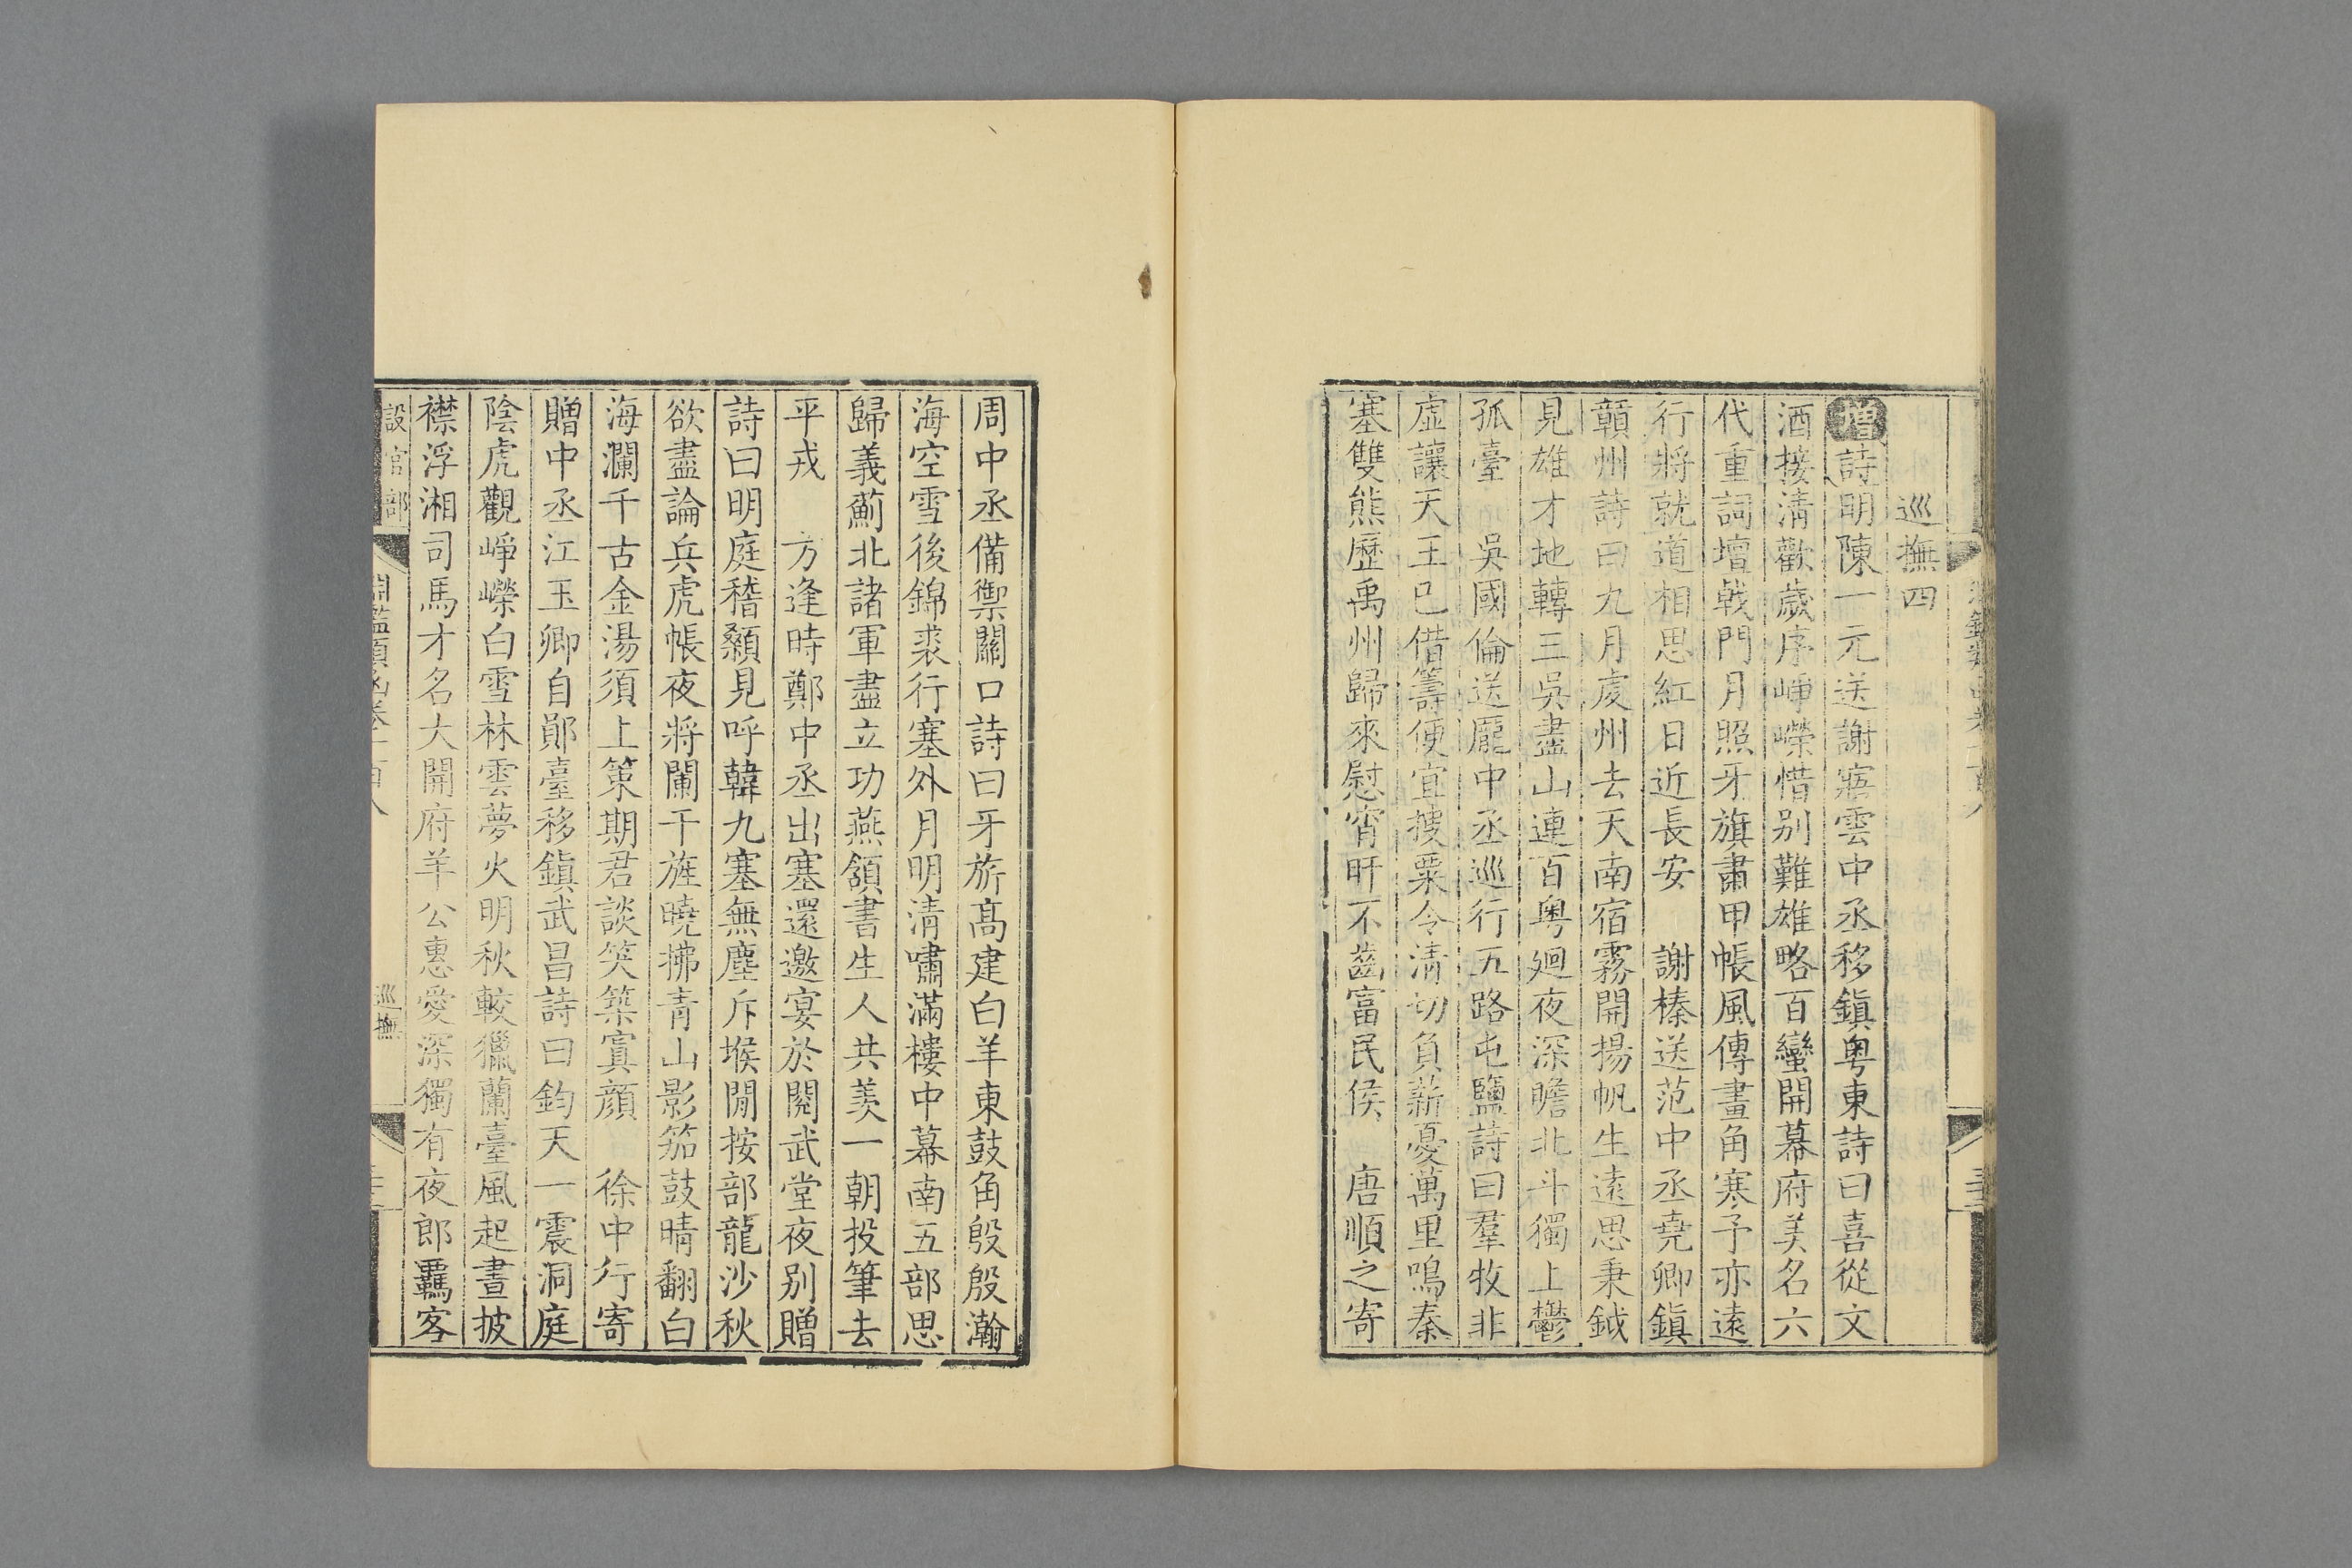 巡撫四
增詩明陳一元送謝寤雲中丞移鎮粤東詩曰喜從文
酒接清歡歲序崢嶸惜别難雄略百蠻開幕府美名六
代重詞壇戟門月照牙旗肅甲帳風傳畫角寒予亦遠
行將就道相思紅日近長安　謝榛送范中丞堯卿鎮
贑州詩曰九月虔州去天南宿霧開揚帆生遠思秉鉞
見雄才地轉三吳盡山連百粤廻夜深瞻北斗獨上鬱
孤臺　吳國倫送龎中丞巡行五路屯鹽詩曰羣牧非
虚讓天王已借籌便宜搜粟令清切負薪憂萬里鳴秦
塞雙熊歴禹州歸來慰宵旰不啻富民侯　唐順之寄
周中丞備禦關口詩曰牙旂髙建白羊東鼓角殷殷瀚
海空雪後錦裘行塞外月明清嘯滿樓中幕南五部思
歸義薊北諸軍盡立功燕頷書生人共羡一朝投筆去
平戎　方逢時鄭中丞出塞還邀宴於閱武堂夜别贈
詩曰明庭稽顙見呼韓九塞無塵斥堠閒按部龍沙秋
欲盡論兵虎帳夜將闌干旌曉拂青山影笳鼓晴翻白
海瀾千古金湯須上策期君談笑築寘顔　徐中行寄
贈中丞江玉卿自鄖臺移鎮武昌詩曰鈞天一震洞庭
陰虎觀崢嶸白雪林雲夢火明秋較獵蘭臺風起晝披
襟浮湘司馬才名大開府羊公惠愛深獨有夜郎羈客
設官部
淵鑑類函卷一百八
巡撫